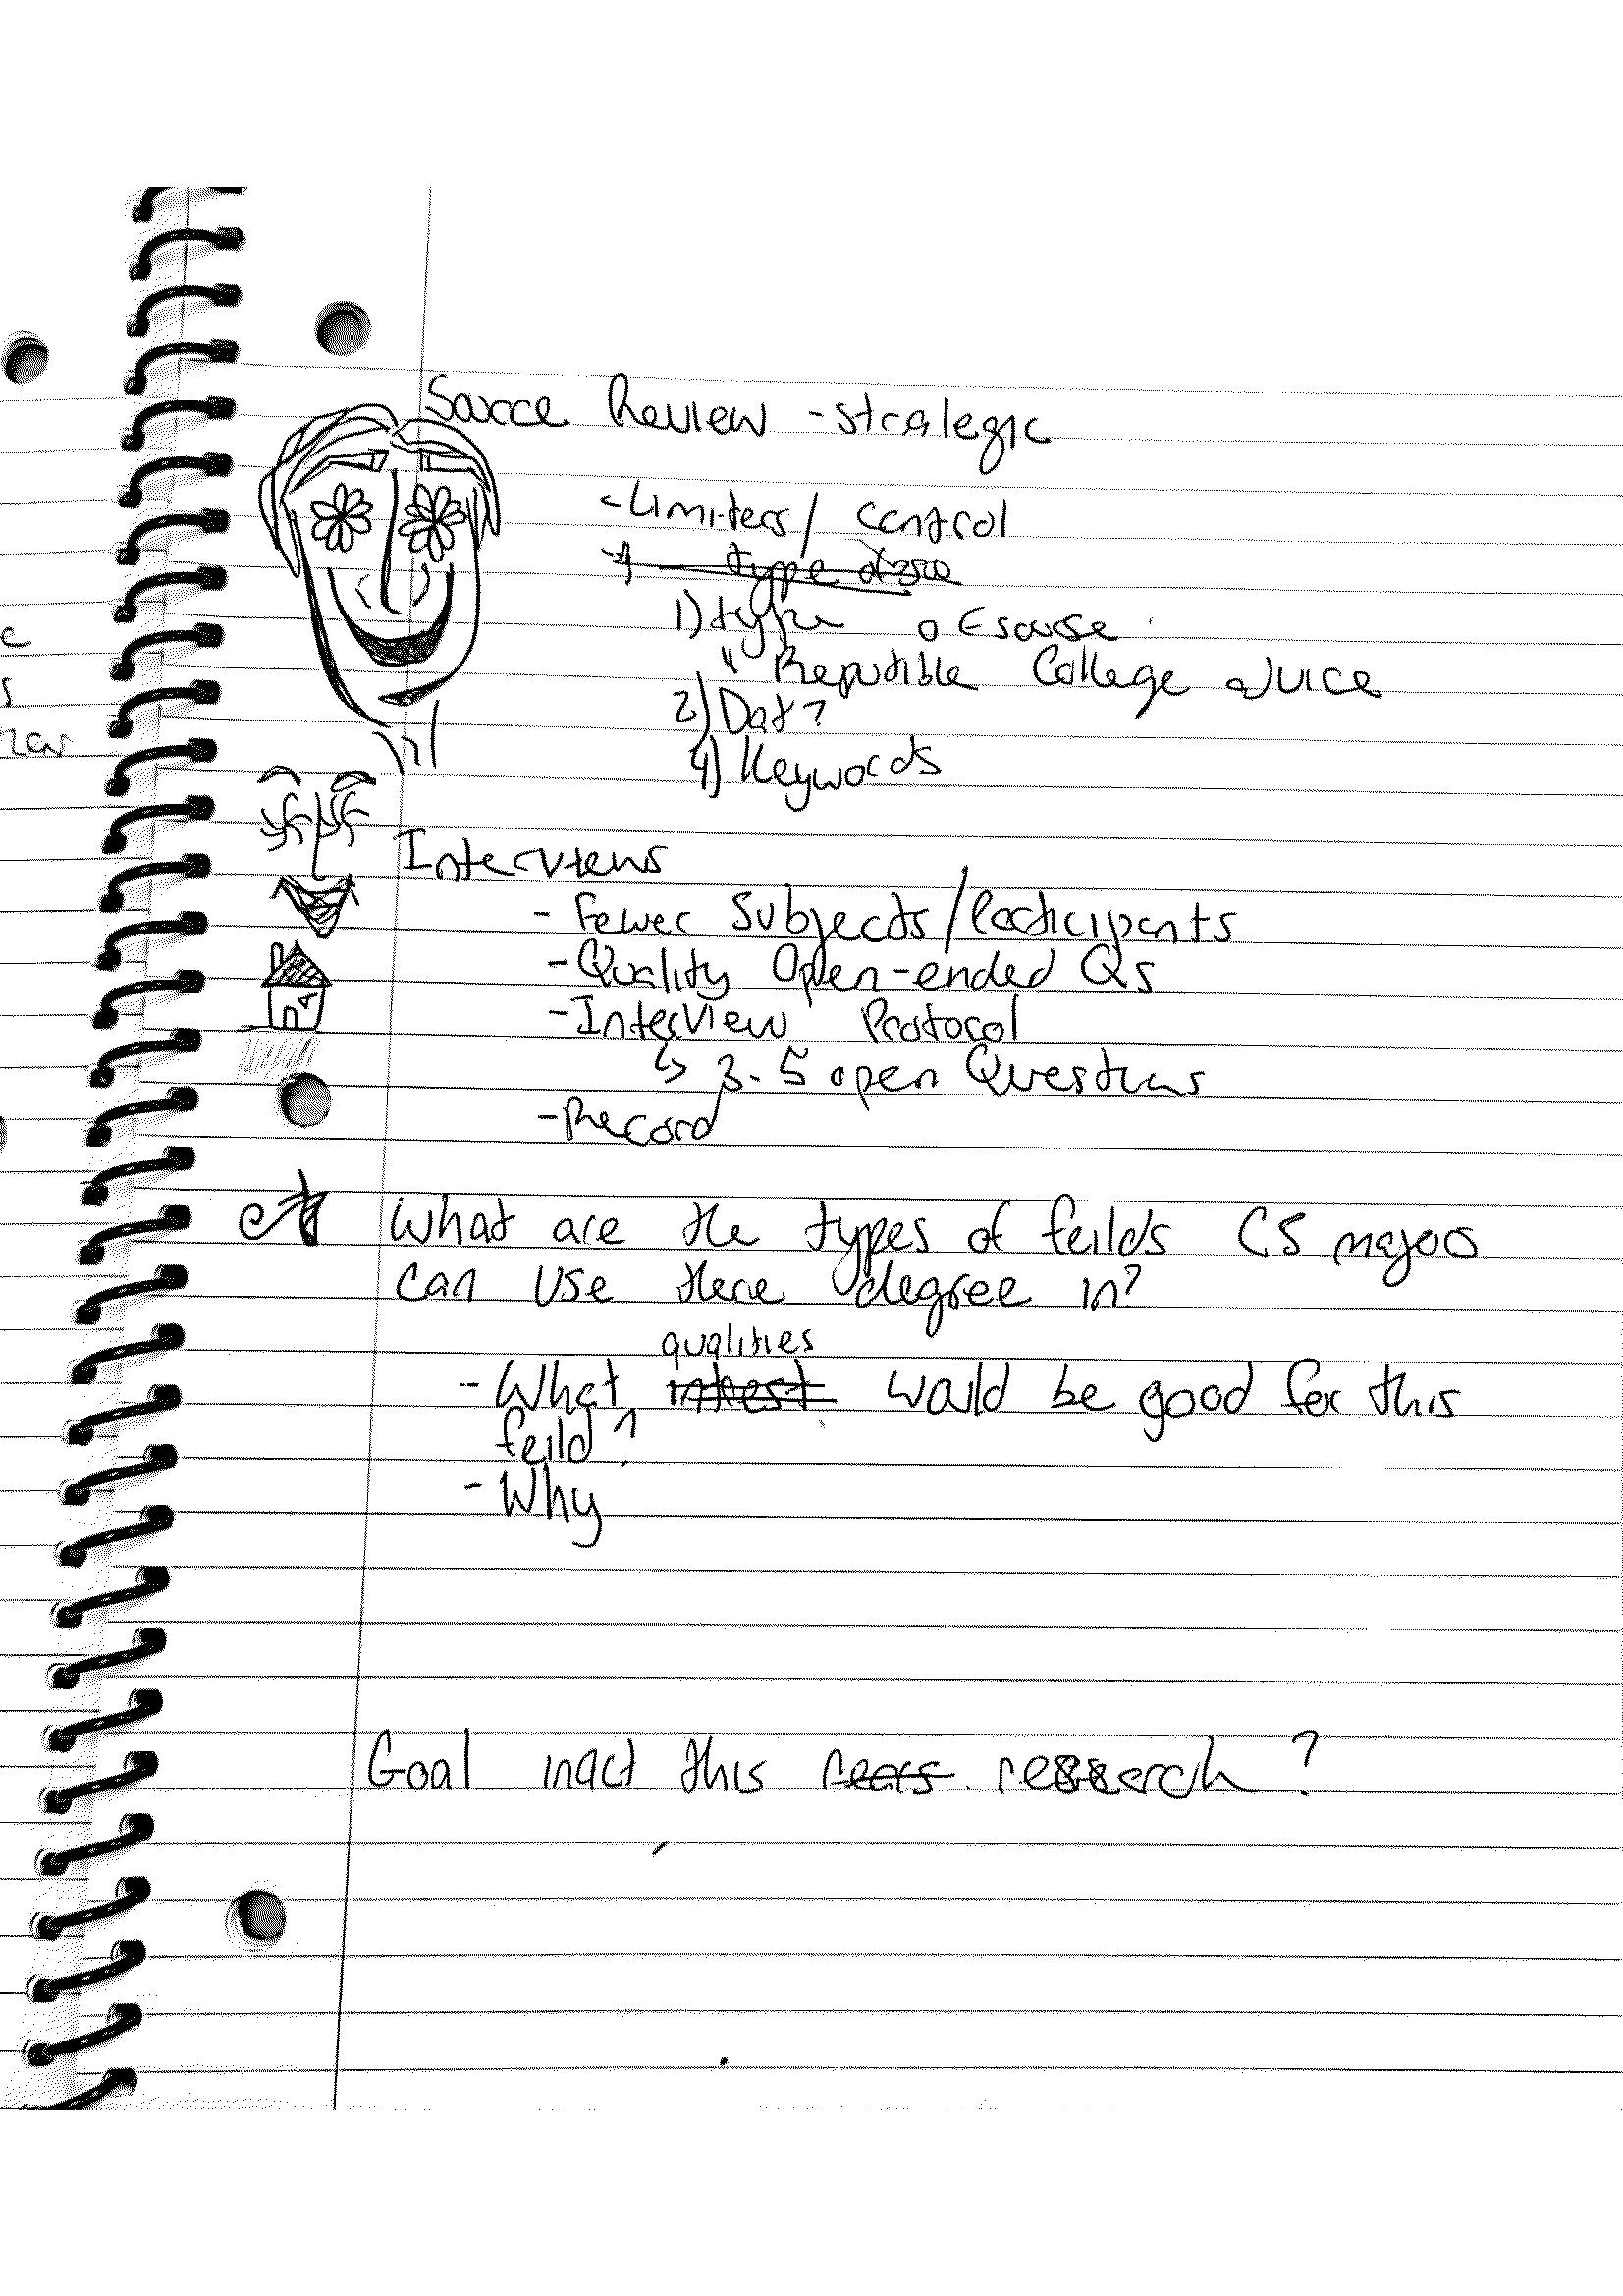 Source Review - strategic
- Limiters / control
type of
1) type of source
" Reputible College advice
2) Dat?
4) Keywords
Interviews
- Fewer Subjects/Participants
- Quality Open-ended Qs
- Interview Protocol
↳ 3-5 open Questions
- Record
What are the types of feilds CS majors
can use there degree in?
qualities
- What intrest would be good for this
feild?
- Why
Goal this resserch?